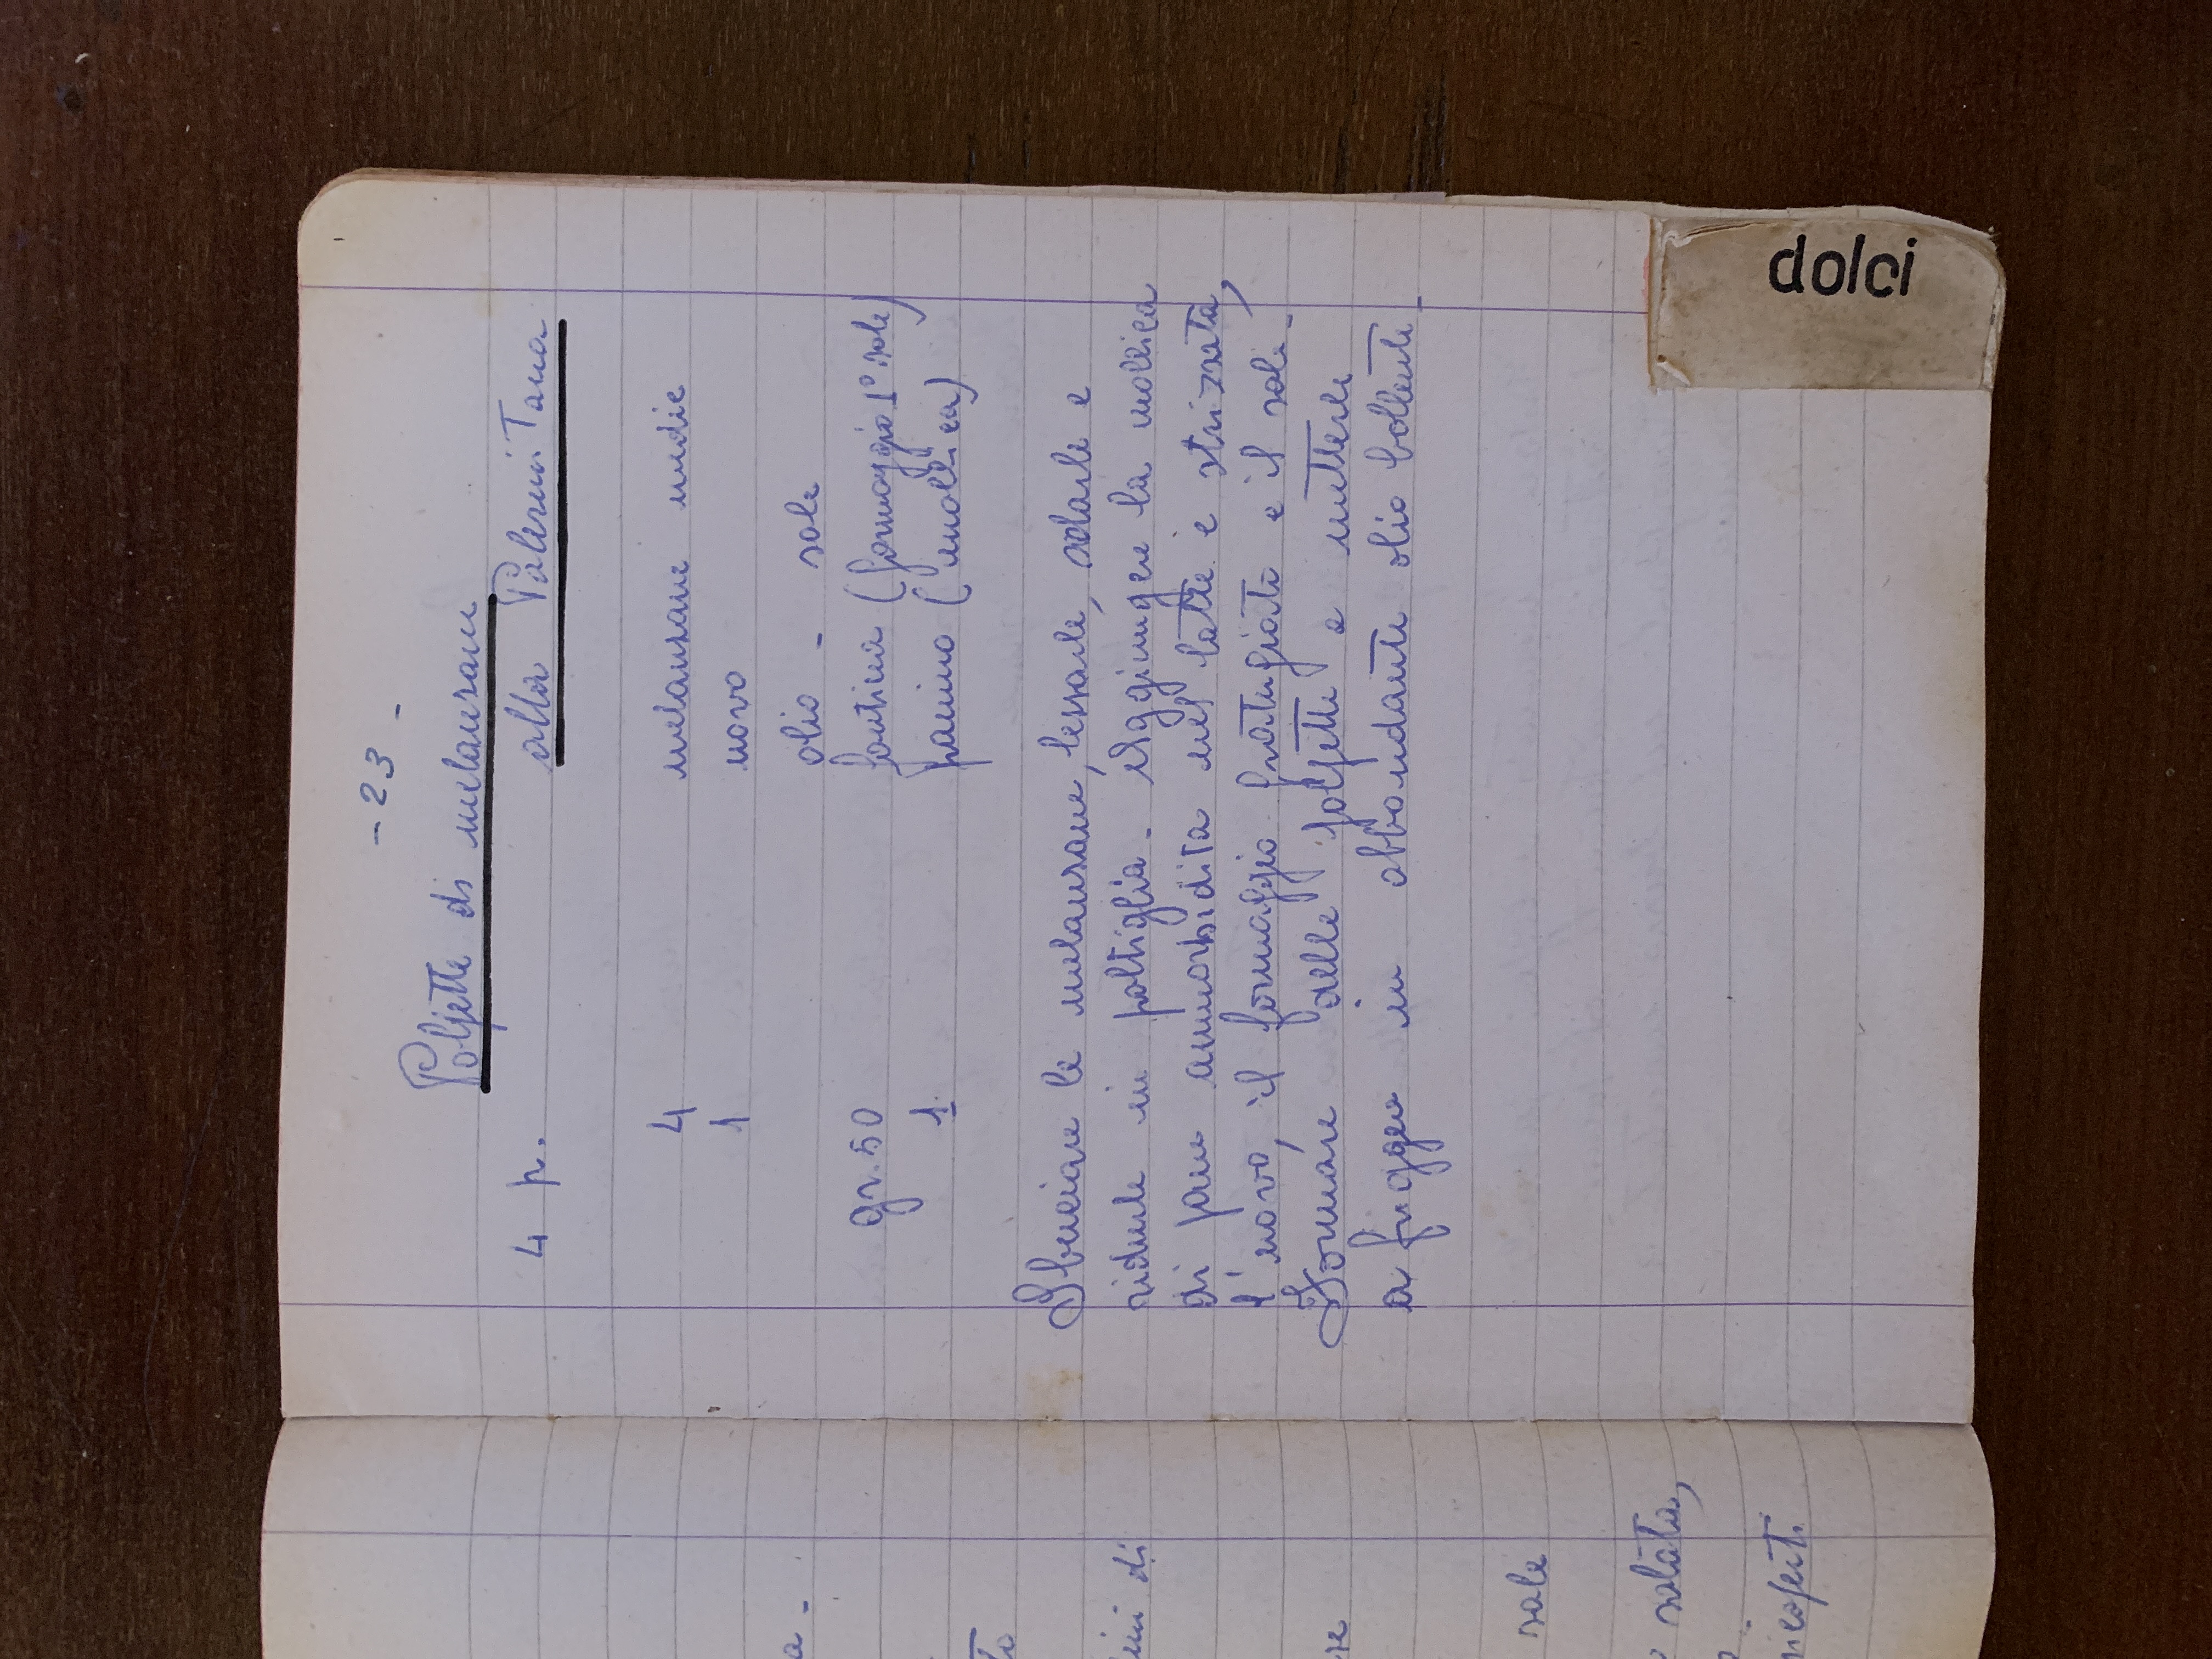 a -
to
ini di
re
sale
salata,
- 23 -
Polpette di melanzane
4 p. alla Palermitana
4 melanzane medie
1 uovo
olio - sale
gr. 50 fontina (formaggio 1° sale)
1 panino (mollica)
Sbucciare le melanzane, lessarle, salarle e
ridurle in poltiglia - Aggiungere la mollica
di pane ammorbidita nel latte e strizzata,
l'uovo, il formaggio grattugiato e il sale -
Formare delle polpette e metterle
a friggere in abbondante olio bollente -
dolci